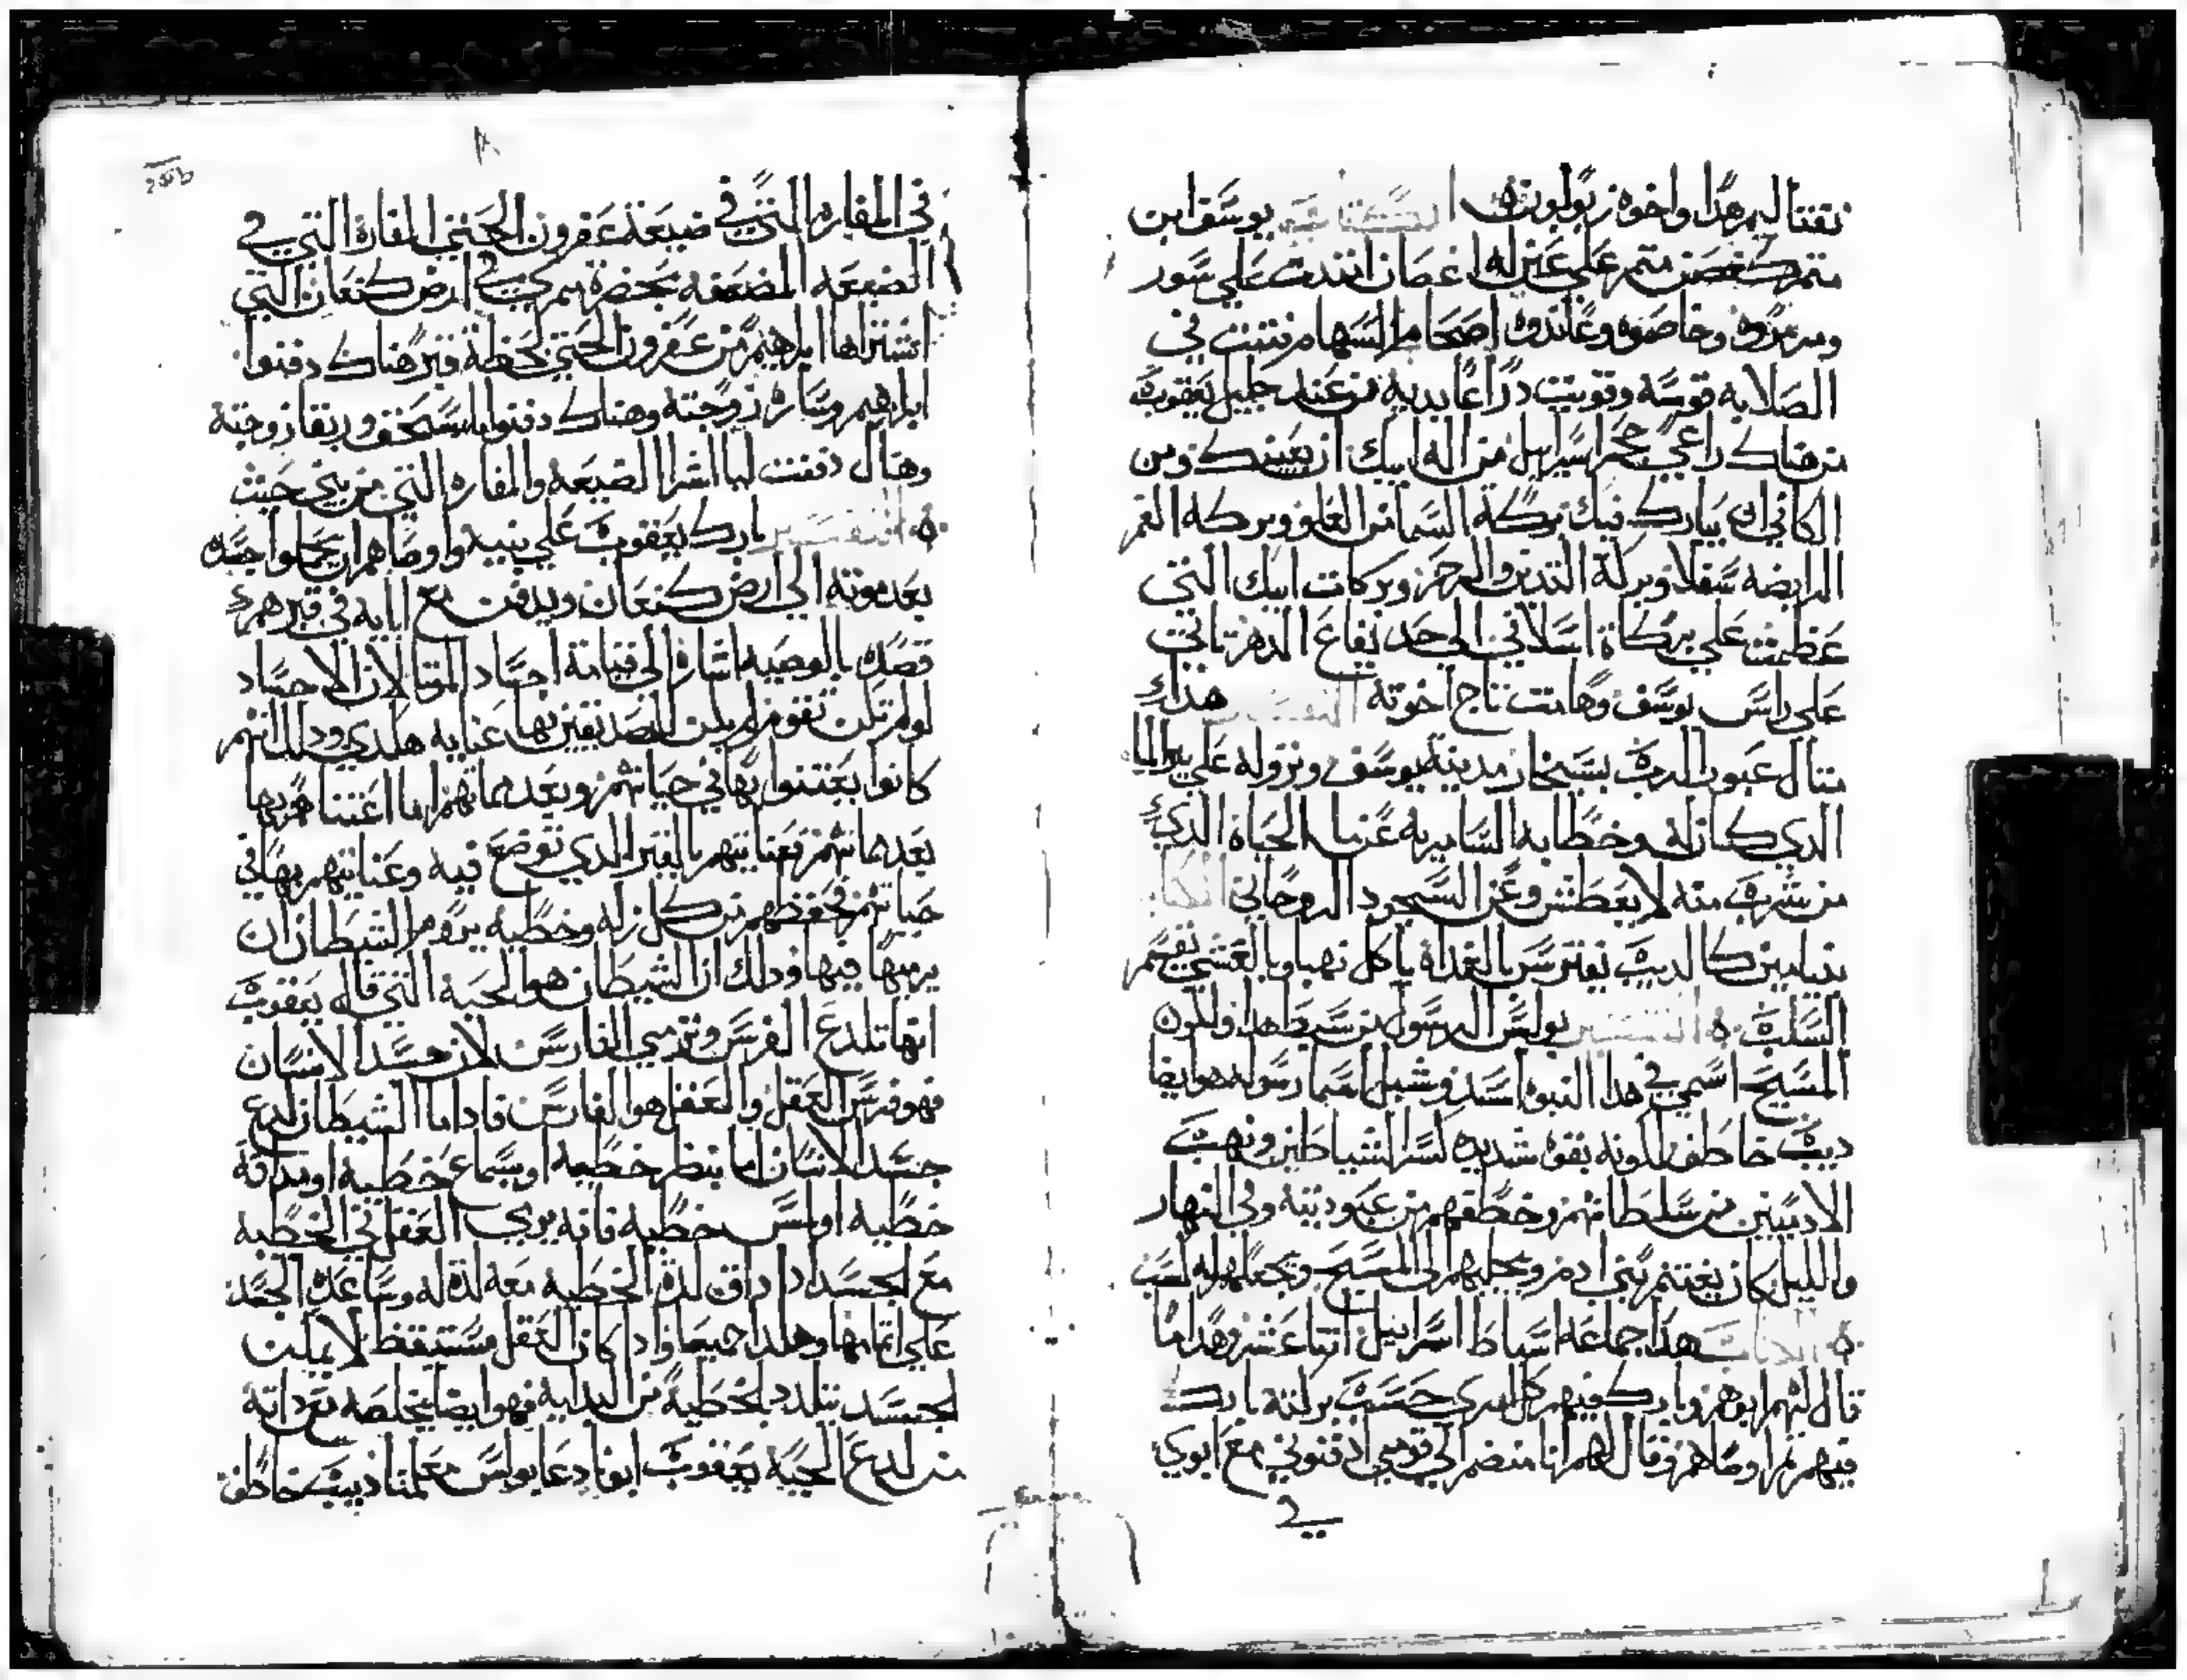 نفتاليم هدا واخوه زبولون ه ا يوسف ابن
متمر كغصن متمر علي عين له اغصان امتدت علي سور
ومرمروه وخاصموه وعاندوه اصحاب السهام فتبتت في
الصلابه قوسه وقويت دراعا يديه من عند جليل يعقوب
من هناك راعي حجر اسراييل من اله ابيك ان يعينك ومن
الكافي ان يبارك فيك بركة السما من العلو وبركه الغمر
الرابضه سفلا وبركة التديين والرحم وبركات ابيك التي
عظمت علي بركاة اسلافي الي حد يفاع الدهر تاتي
علي راس يوسف وهامت تاج اخوته التفسير هدا
متال عبور الرب بسيخار مدينة يوسف ونزوله علي بير الما
الدي كان له وخطابه السامريه عن ما الحياة الدي
من شرب منه لا يعطش وعن السجود الروحاني الكتاب
بنيامين كالديب يفترس بالغداة ياكل نهبا وبالعشي يقسم
السلب ه التفسير بولس الرسول من سبط هدا ولكون
المسيح اسمي في هدا النبوه اسد وشبل اسما رسوله هو ايضا
ديب خاطف لكونه بقوه شديده كسر الشياطين ونهب
الادميين من سلطانهم وخطفهم من عبوديته وفي النهار
والليل كان يغتنم بني ادم ويجلبهم الي المسيح ويجعلهم له كسب
ه الكتاب هدا جماعه اسباط اسراييل اتنا عشر وهدا ما
قال لهم ابوهم وبارك فيهم كل امري حسب بركته بارك
فيهم تم اوصاهم وقال لهم انا منضم الي قومي ادفنوني مع ابوي
في
في المغاره التي في ضيعة عفرون الحتي المغارة التي في
الضيعه المضعفه بحضرة ممري في ارض كنعان التي
اشتراها ابراهيم من عفرون الحتي لحظة قبر هناك دفنوا
ابراهيم وساره زوجته وهناك دفنوا اسحق وربقا زوجته
وهناك دفنت ليا اشرا الضيعه والمغاره التي من بني حيث
ه التفسير بارك يعقوب علي بنيه واوصاهم ان يحملوا جسده
بعد موته الي ارض كنعان ويدفن مع ابايه في قبرهم
قصده بالوصيه اشاره الي قيامة اجساد الموتا لان الاجساد
لو لم تكن تقوم لم يكن للصديقين بها عنايه هكدي ودلك انهم
كانوا يعتنوا بها في حياتهم وبعد مماتهم اما اعتناهم بها
بعد مماتهم فعنايتهم بالقبر الدي توضع فيه وعنايتهم بها في
حياتهم تحفظهم من كل زله وخطيه يروم الشيطان ان
يرميها فيها ودلك ان الشيطان هو الحيه التي قال يعقوب
انها تلدع الفرس وترمي الفارس لان جسد الانسان
فهو فرس العقل والعقل هو الفارس فادا ما الشيطان لدع
جسد الانسان اما بنظر خطيه او بسماع خطيه او بمداقة
خطيه او لمس خطيه فانه يرمي العقل في الخطيه
مع الجسد ادا داق لدة الخطيه معه لدة له وساعده الجسد
علي اتمامها وهلكا جميعا وادا كان العقل مستيقظ لا يمكن
الجسد يتلدد بالخطية من البدايه فهو ايضا يخلصه مع داته
من لدع الحيه يعقوب ابونا دعا بولس معلمنا ديب خاطف